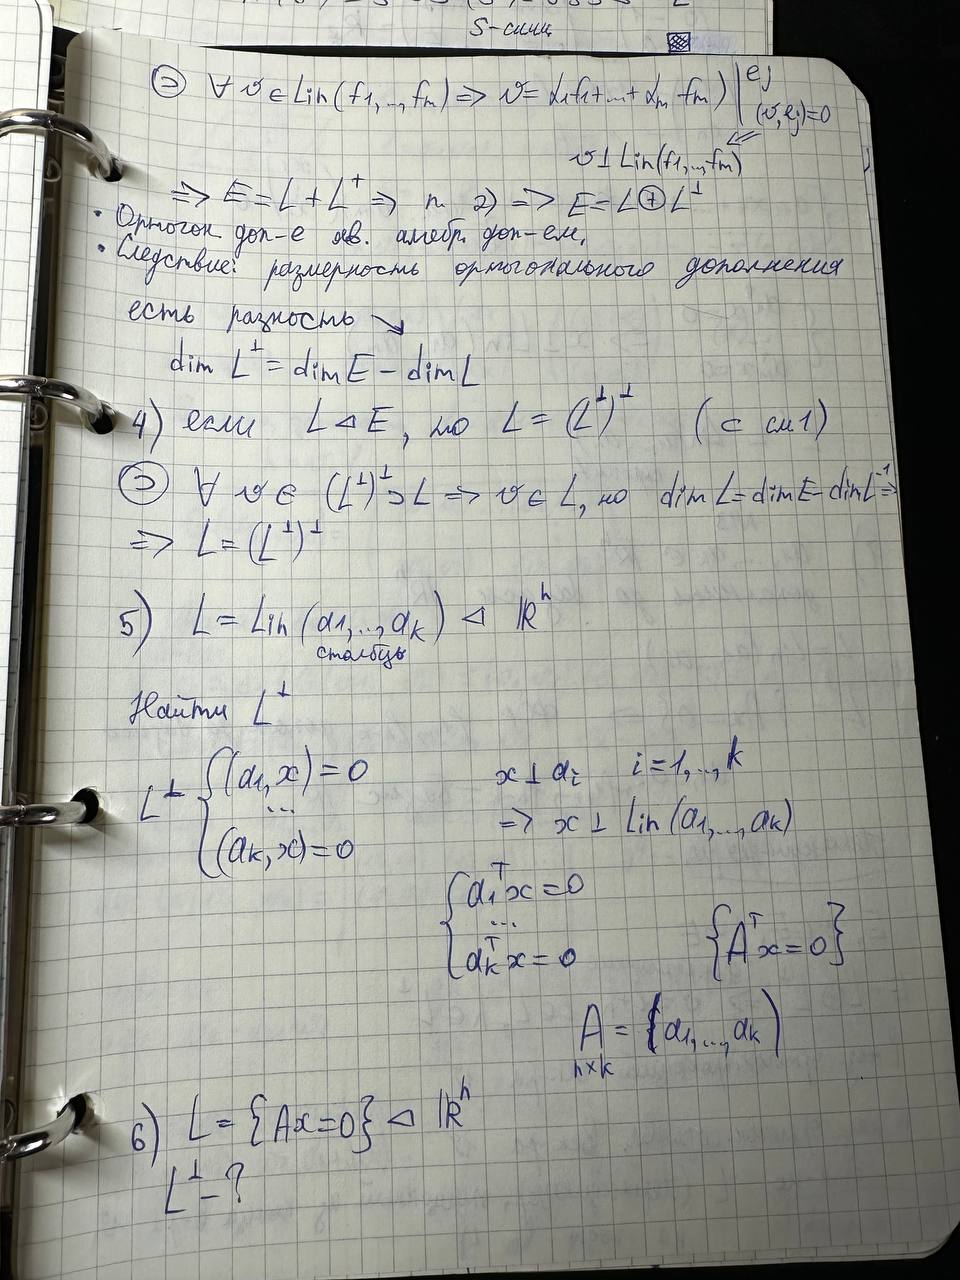 S-слиц
∋ ∀ v ∈ Lin(f1,..,fm) => v = α1f1+...+αm fm) | ej
(v, ej)=0
v ⊥ Lin(f1,..,fm)
=> E = L + L^⊥ => п. 2) => E = L ⊕ L^⊥
• Ортогон. доп-е яв. алгебр. доп-ем.
• Следствие: размерность ортогонального дополнения
есть разность ↘
dim L^⊥ = dim E - dim L
4) если L ⊲ E, то L = (L^⊥)^⊥ (⊂ см 1)
∋ ∀ v ∈ (L^⊥)^⊥ ⊃ L => v ∈ L, но dim L = dim E - dim L^⊥ =>
=> L = (L^⊥)^⊥
5) L = Lin (a1,..,ak) ⊲ ℝ^n
столбцы
Найти L^⊥
L^⊥ { (a1, x) = 0 x ⊥ ai i = 1,..,k
...
(ak, x) = 0 => x ⊥ Lin (a1,..,ak)
{ a1^T x = 0
...
ak^T x = 0 {A^T x = 0}
A = (a1,..,ak)
n×k
6) L = {Ax = 0} ⊲ ℝ^n
L^⊥ - ?